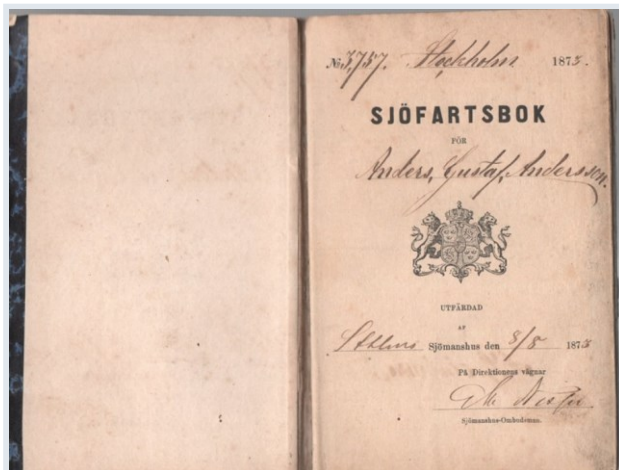 № 3,757. Stockholm 1873.
SJÖFARTSBOK
FÖR
Anders, Gustaf, Andersson.
UTFÄRDAD
AF
Sthlms Sjömanshus den 8/8 1873
På Direktionens vägnar
Sjömanshus-Ombudsman.